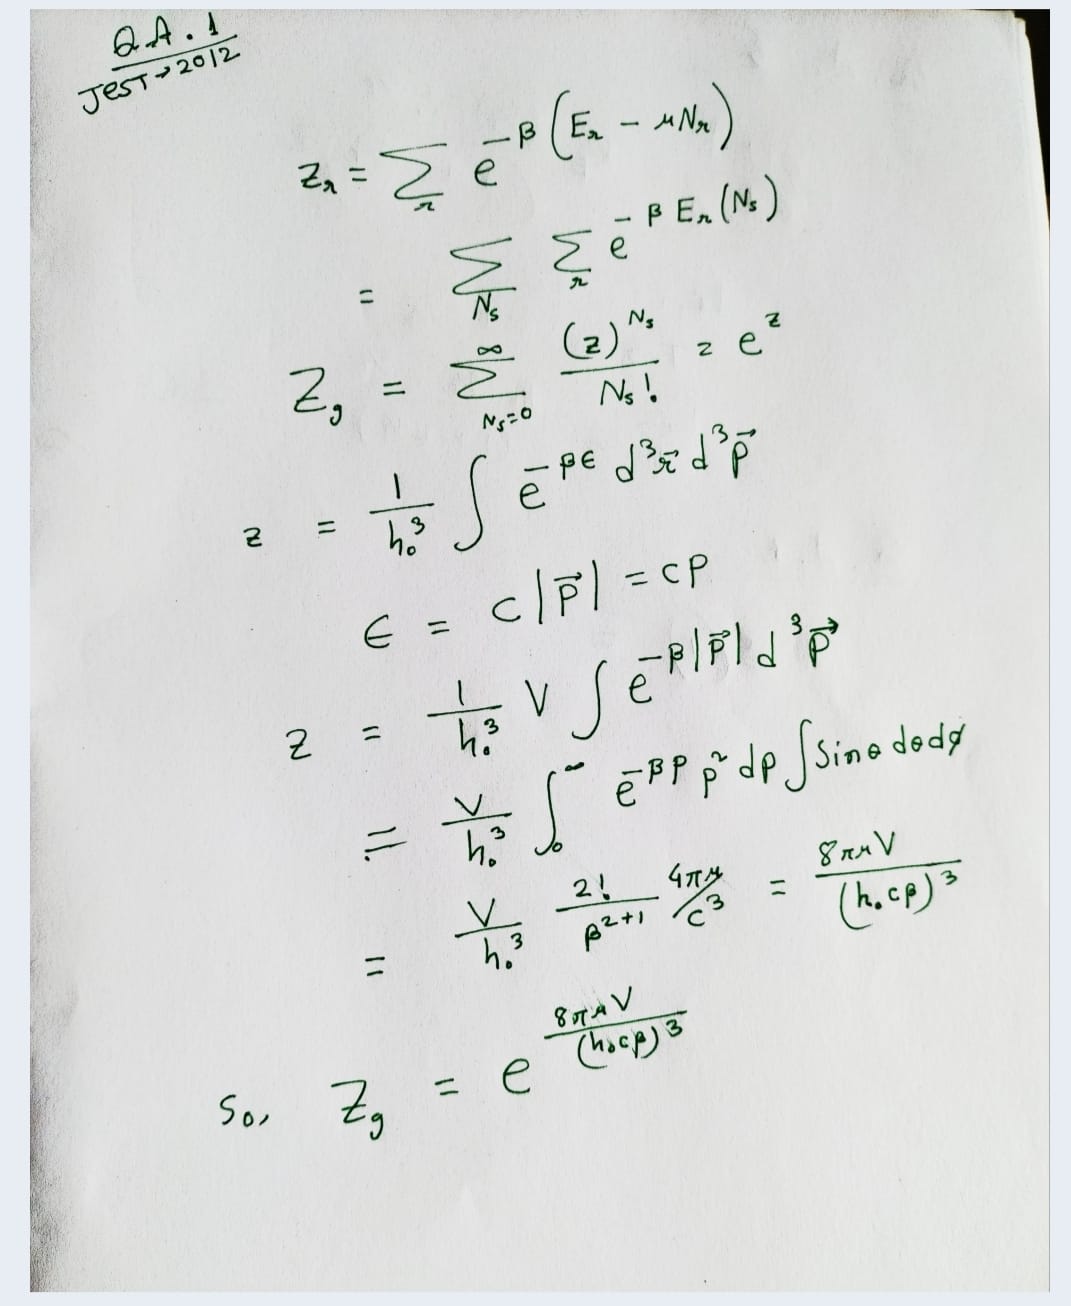 Q.A.1
JEST → 2012
Z_r = Σ_r e^{-β(E_r - μN_r)}
= Σ_{N_s} Σ_r e^{-βE_r(N_s)}
Z_g = Σ_{N_s=0}^{∞} (z)^{N_s} / N_s! = e^z
z = 1/h₀³ ∫ e^{-βϵ} d³r⃗ d³p⃗
ϵ = c|p⃗| = cp
z = 1/h₀³ V ∫ e^{-β|p⃗|} d³p⃗
= V/h₀³ ∫₀^∞ e^{-βp} p² dp ∫ sinθ dθ dϕ
= V/h₀³ 2!/β^{2+1} 4πμ/c³ = 8πμV/(h₀cβ)³
So, Z_g = e^{8πμV/(h₀cβ)³}